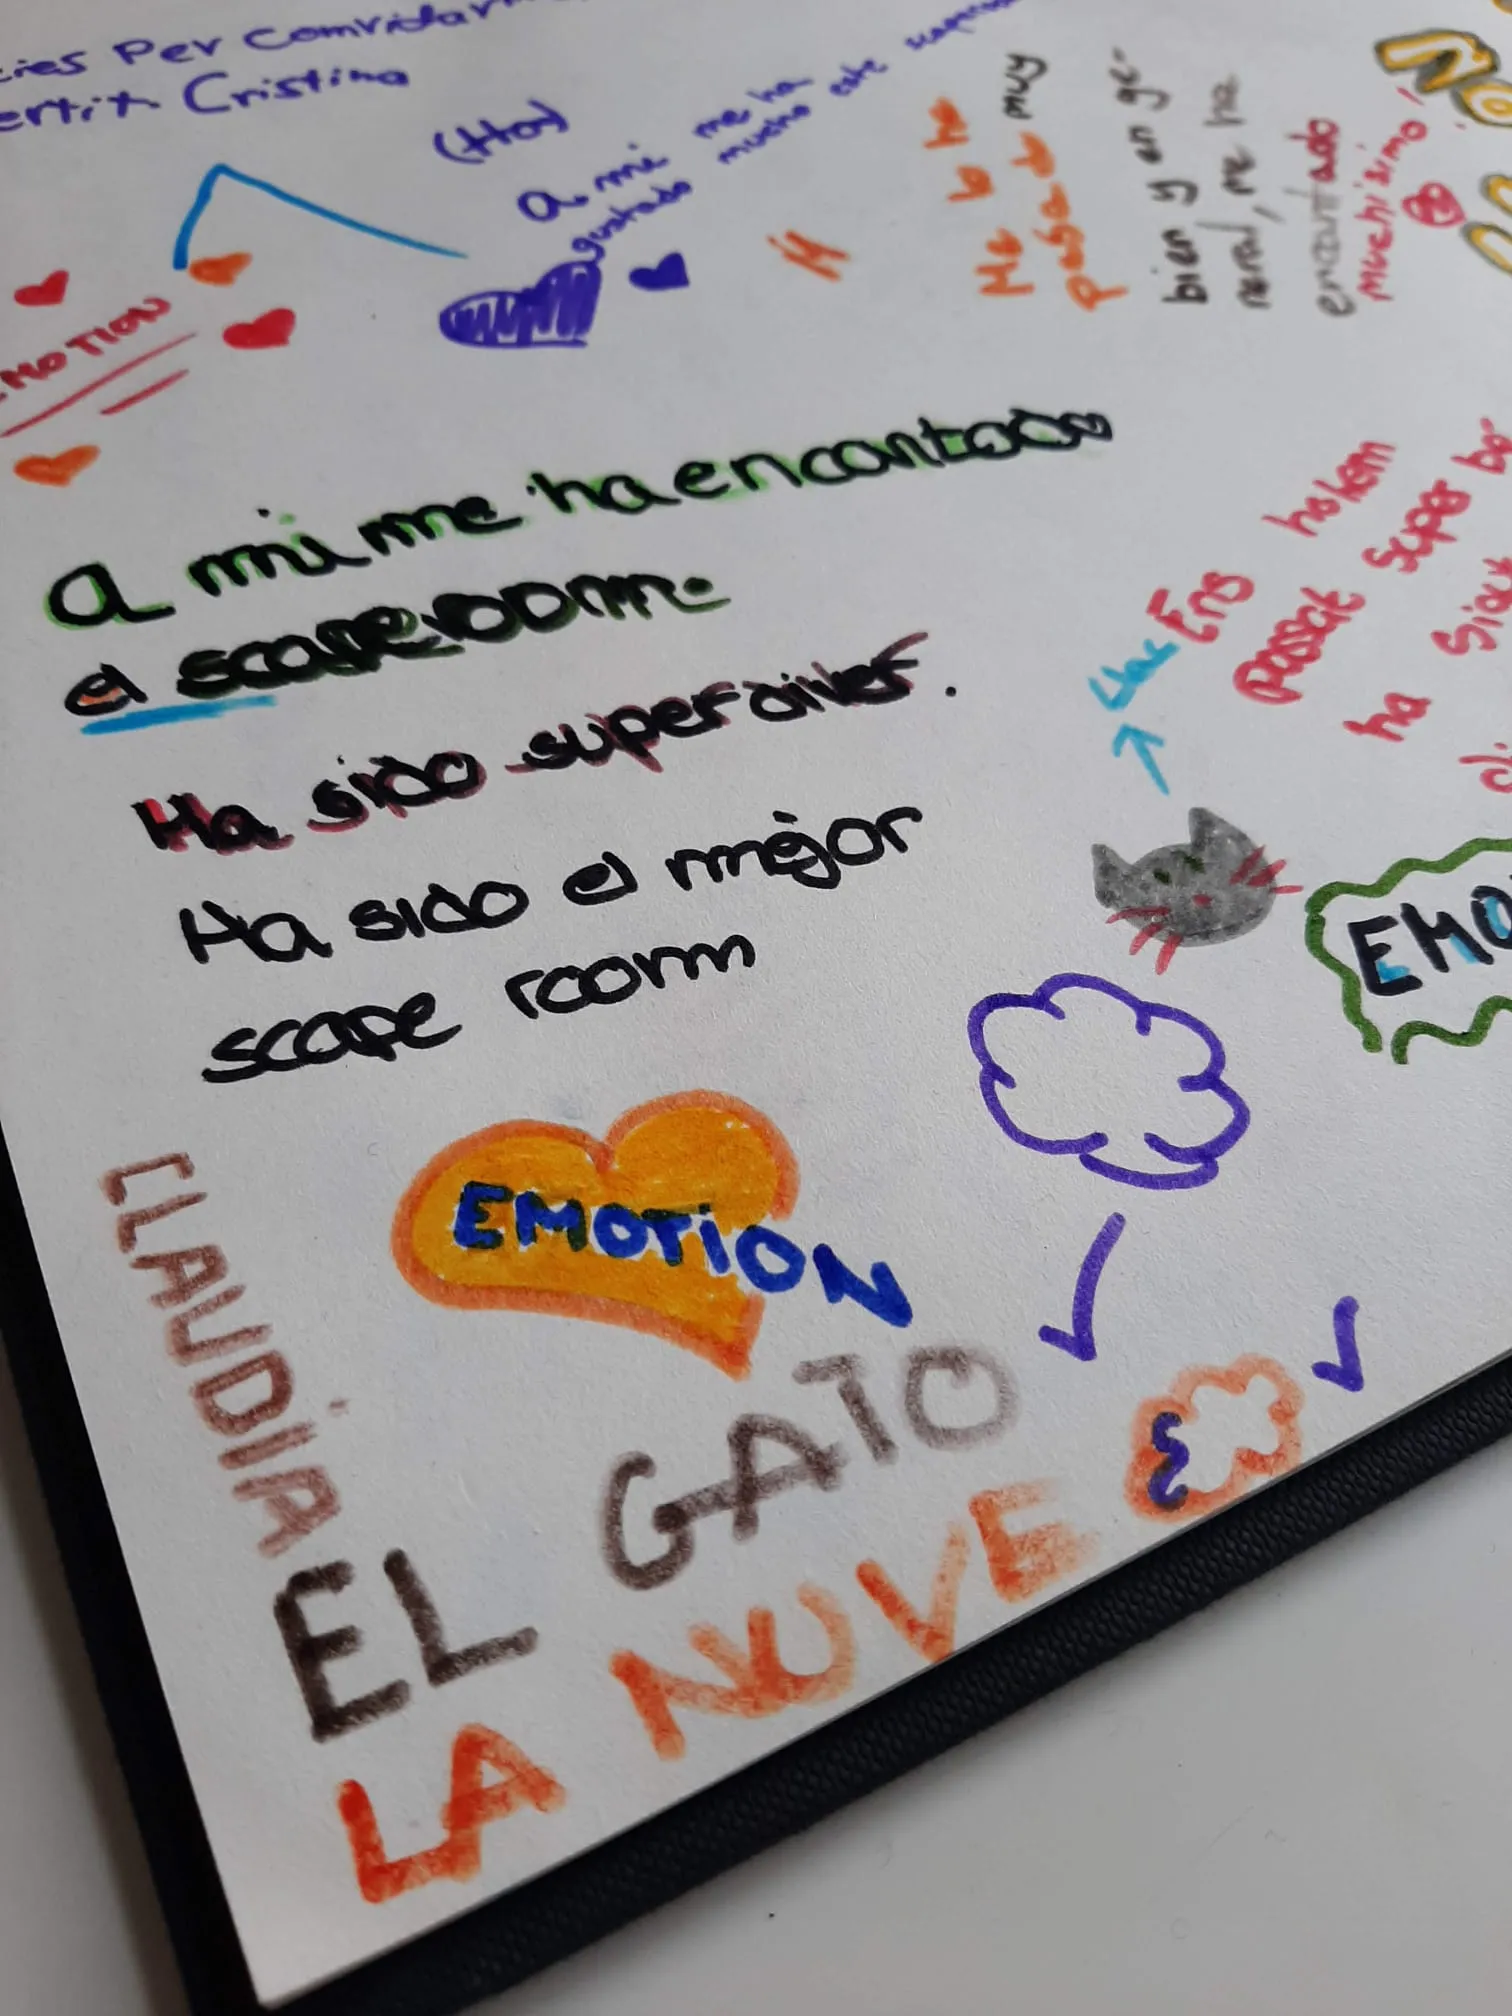 Per Comvidar
Cristina
(Hoy)
a mi me ha
gustado mucho este
Me lo he
pasado muy
bien y en ge-
neral, me ha
encantado
muchisimo!
EMOTION
a mi me ha encantado
el scape room.
Ha sido superdiver.
Ha sido el mejor
scape room
Ens ho hem
passat super
ha
EMO
EMOTION
CLAUDIA
EL GATO
LA NUVE